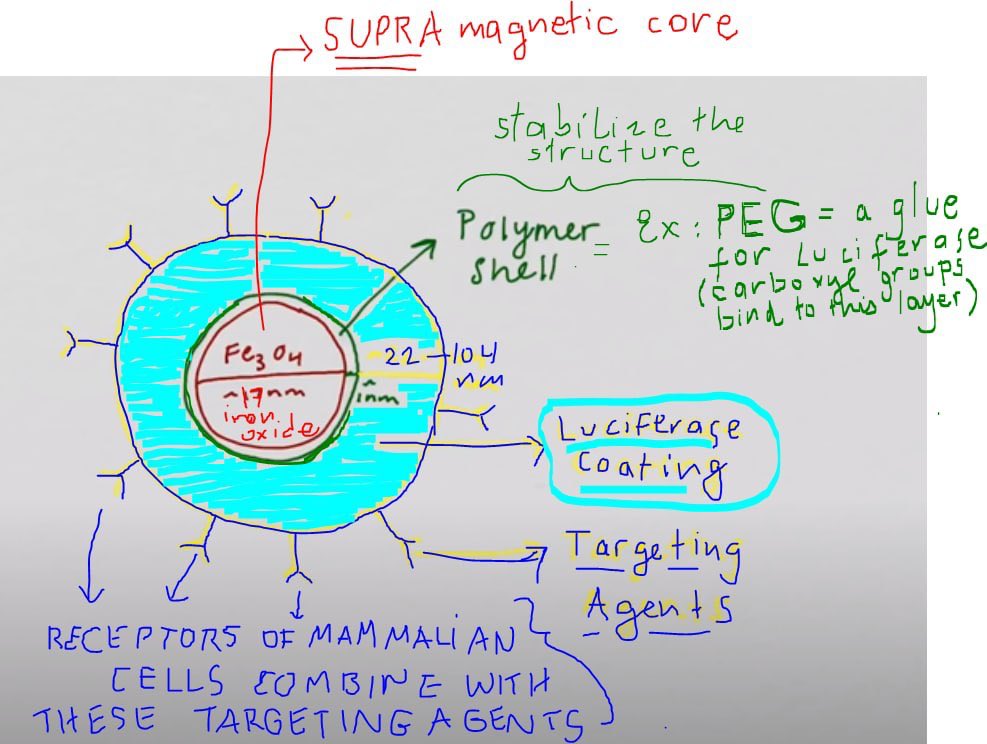 SUPRA magnetic core
stabilize the
structure
Polymer = Ex: PEG = a glue
shell for Luciferase
(carboxyl groups
bind to this layer)
Fe3O4
~17nm
iron
oxide
22-104
nm
Luciferase
coating
Targeting
Agents
RECEPTORS OF MAMMALIAN
CELLS COMBINE WITH
THESE TARGETING AGENTS